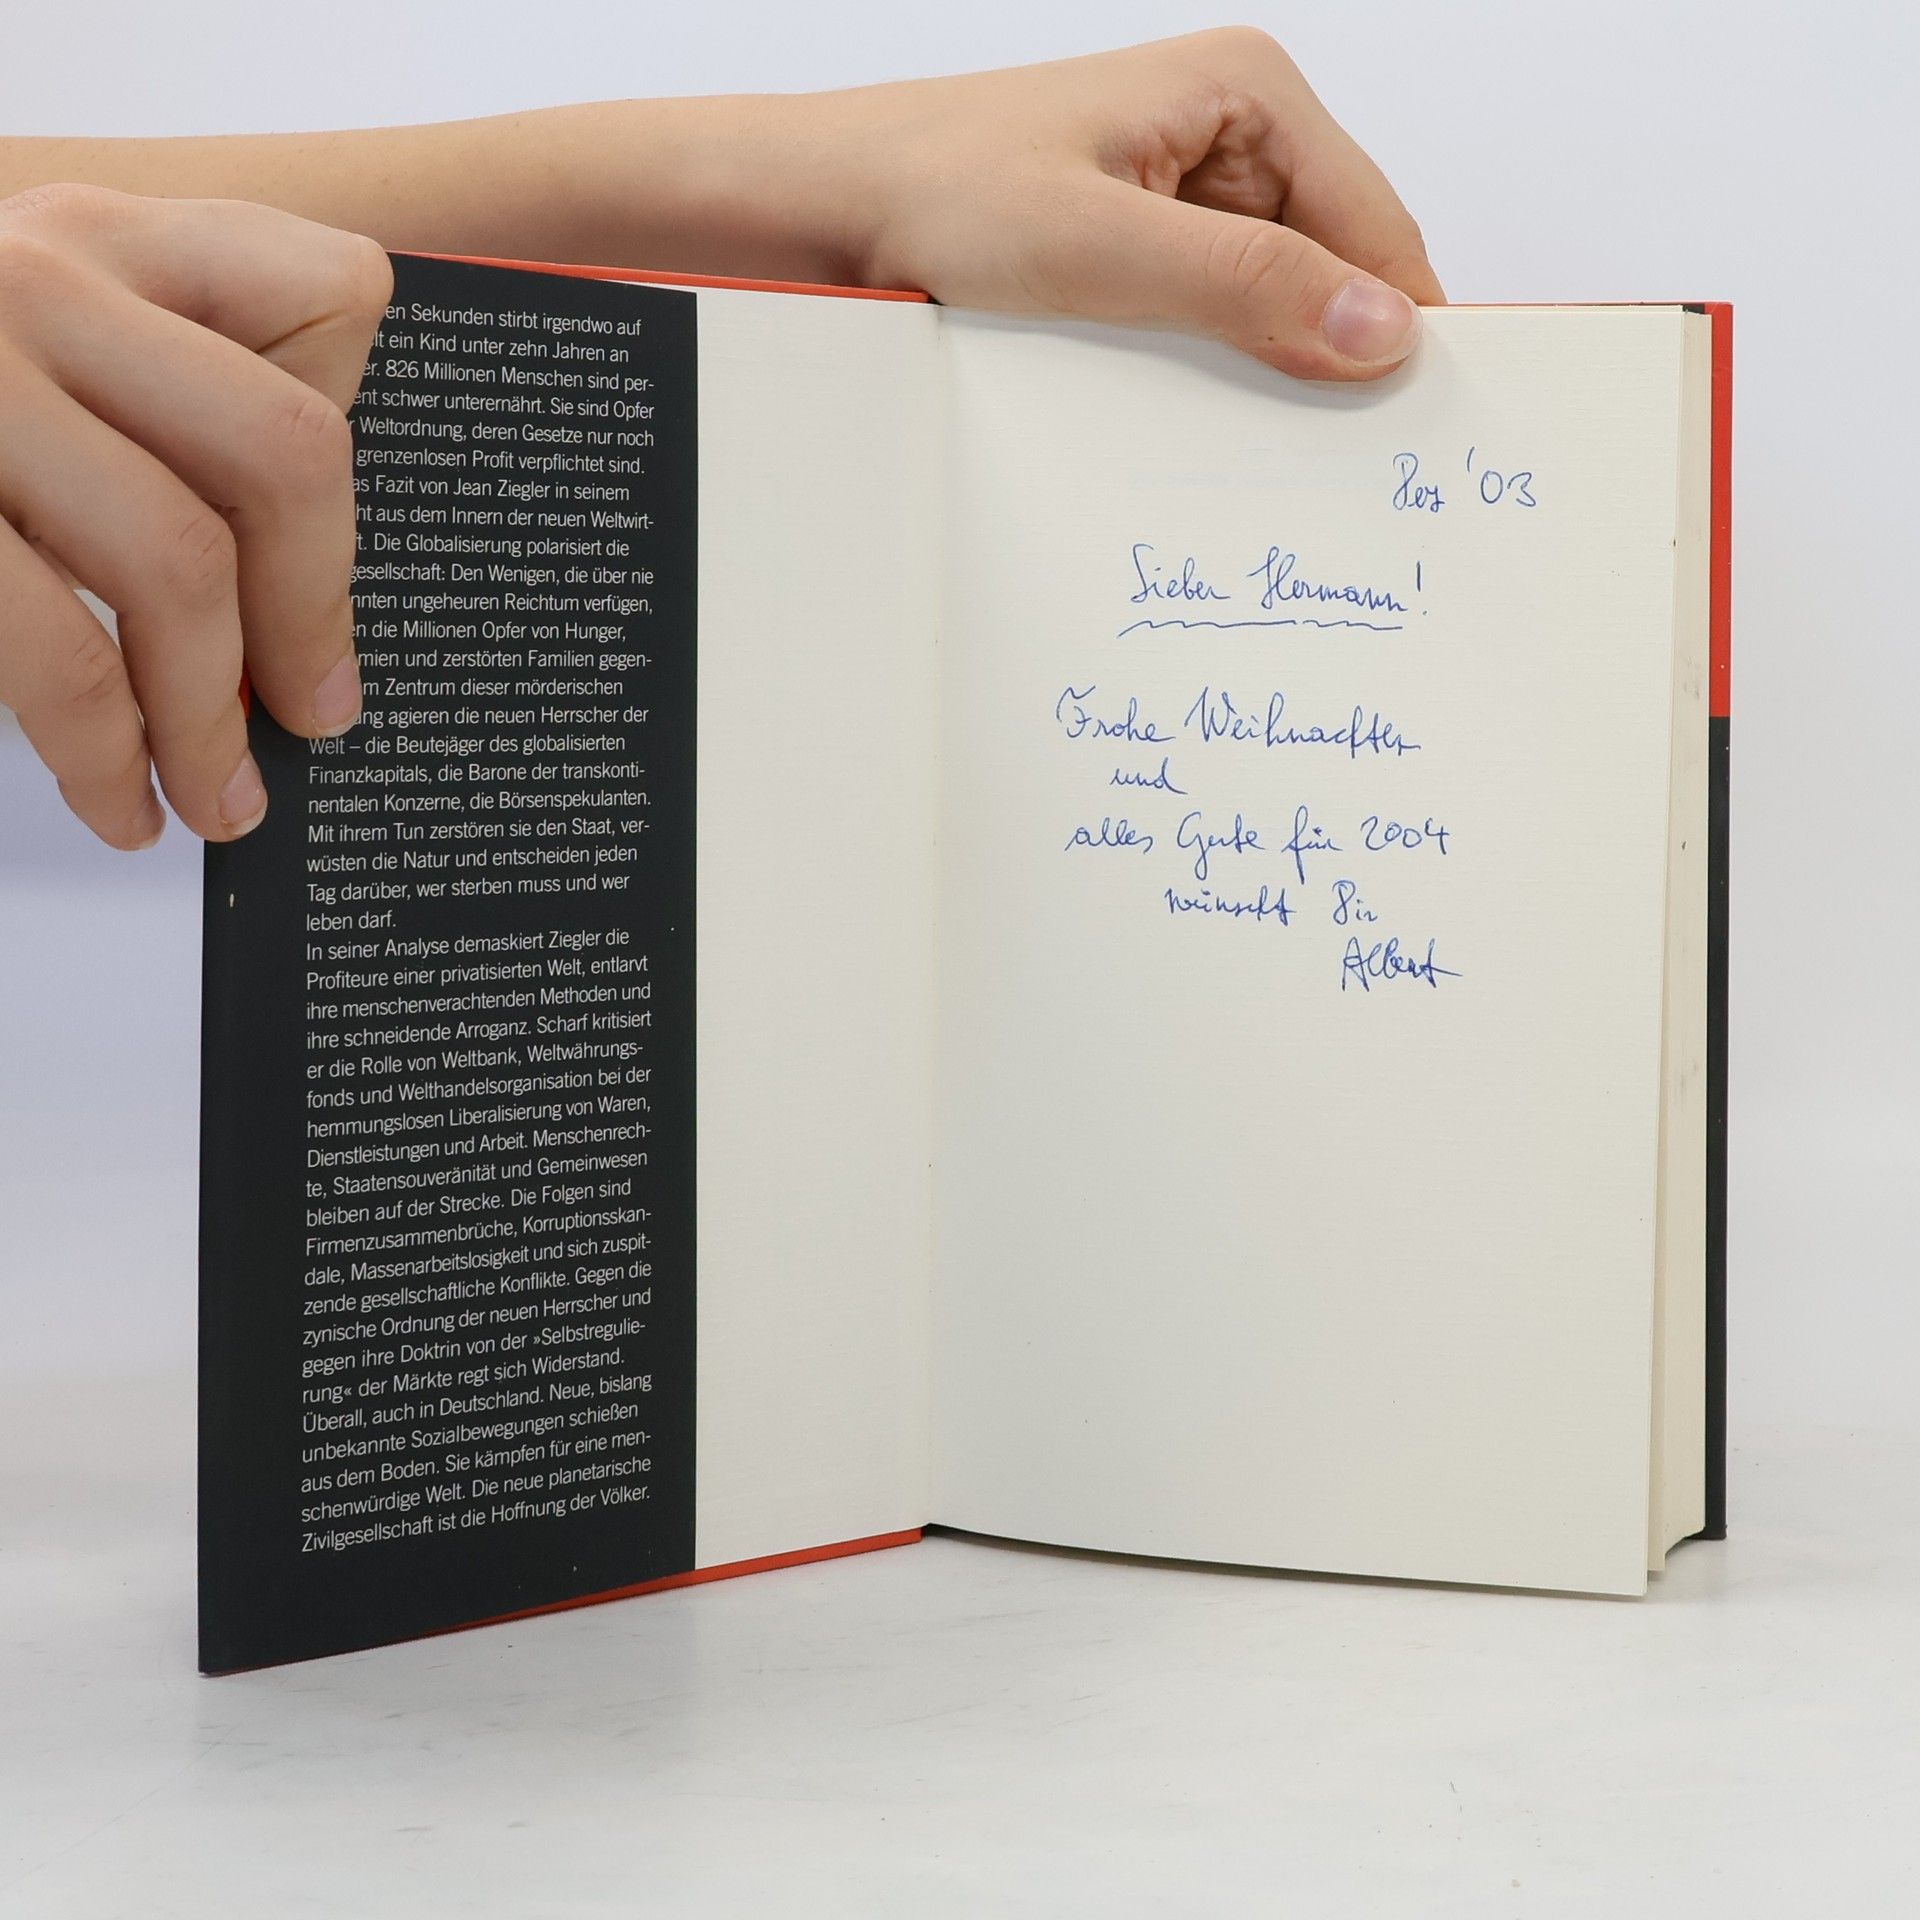 en Sekunden stirbt irgendwo auf
lt ein Kind unter zehn Jahren an
er. 826 Millionen Menschen sind per-
ent schwer unterernährt. Sie sind Opfer
r Weltordnung, deren Gesetze nur noch
grenzenlosen Profit verpflichtet sind.
as Fazit von Jean Ziegler in seinem
ht aus dem Innern der neuen Weltwirt-
t. Die Globalisierung polarisiert die
gesellschaft: Den Wenigen, die über nie
nnten ungeheuren Reichtum verfügen,
en die Millionen Opfer von Hunger,
mien und zerstörten Familien gegen-
m Zentrum dieser mörderischen
ng agieren die neuen Herrscher der
Welt – die Beutejäger des globalisierten
Finanzkapitals, die Barone der transkonti-
nentalen Konzerne, die Börsenspekulanten.
Mit ihrem Tun zerstören sie den Staat, ver-
wüsten die Natur und entscheiden jeden
Tag darüber, wer sterben muss und wer
leben darf.
In seiner Analyse demaskiert Ziegler die
Profiteure einer privatisierten Welt, entlarvt
ihre menschenverachtenden Methoden und
ihre schneidende Arroganz. Scharf kritisiert
er die Rolle von Weltbank, Weltwährungs-
fonds und Welthandelsorganisation bei der
hemmungslosen Liberalisierung von Waren,
Dienstleistungen und Arbeit. Menschenrech-
te, Staatensouveränität und Gemeinwesen
bleiben auf der Strecke. Die Folgen sind
Firmenzusammenbrüche, Korruptionsskan-
dale, Massenarbeitslosigkeit und sich zuspit-
zende gesellschaftliche Konflikte. Gegen die
zynische Ordnung der neuen Herrscher und
gegen ihre Doktrin von der »Selbstregulie-
rung« der Märkte regt sich Widerstand.
Überall, auch in Deutschland. Neue, bislang
unbekannte Sozialbewegungen schießen
aus dem Boden. Sie kämpfen für eine men-
schenwürdige Welt. Die neue planetarische
Zivilgesellschaft ist die Hoffnung der Völker.
Dez '03
Lieber Hermann!
Frohe Weihnachten
und
alles Gute für 2004
wünscht Dir
Albert